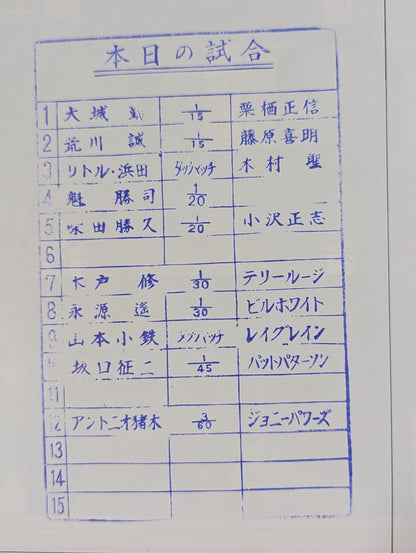 本日の試合
1 大城 勤 1/15 栗栖正信
2 荒川 誠 1/15 藤原喜明
3 リトル・浜田 タッグマッチ 木村 聖
4 魁 勝司 1/20
5 柴田勝久 1/20 小沢正志
6
7 木戸 修 1/30 テリールージ
8 永源 遥 1/30 ビルホワイト
9 山本小鉄 タッグマッチ レイグレイン
坂口征二 1/45 パットパターソン
11
12 アントニオ猪木 3/60 ジョニーパワーズ
13
14
15